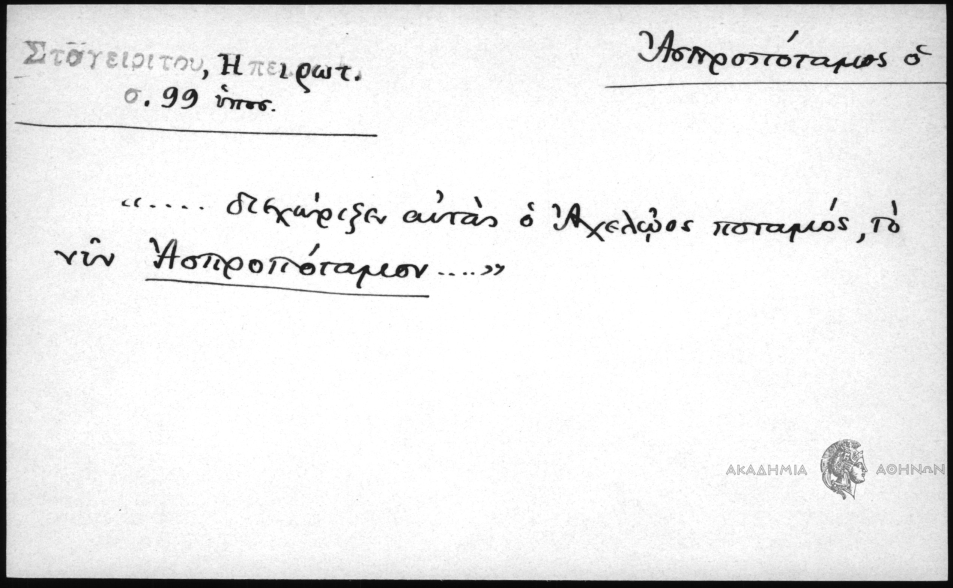 Σταγειρίτου, Ηπειρωτ.
σ. 99 ὑποσ.
Ἀσπροπόταμος ὁ
“.... διεχώριζεν αὐτὰς ὁ Ἀχελῷος ποταμός, τὸ
νῦν Ἀσπροπόταμον ....”
ΑΚΑΔΗΜΙΑ ΑΘΗΝΩΝ